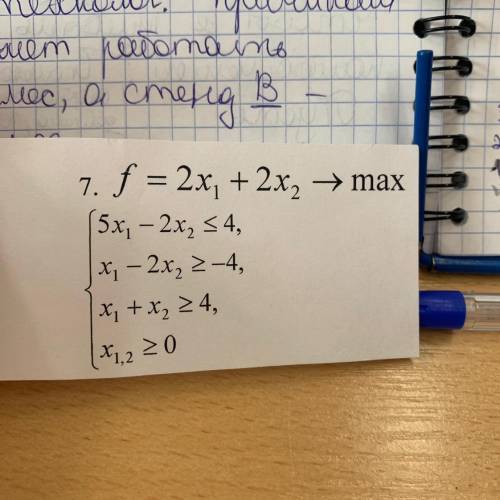 может работать
а стенд В –
7. f = 2x₁ + 2x₂ → max
5x₁ − 2x₂ ≤ 4,
x₁ − 2x₂ ≥ −4,
x₁ + x₂ ≥ 4,
x₁,₂ ≥ 0